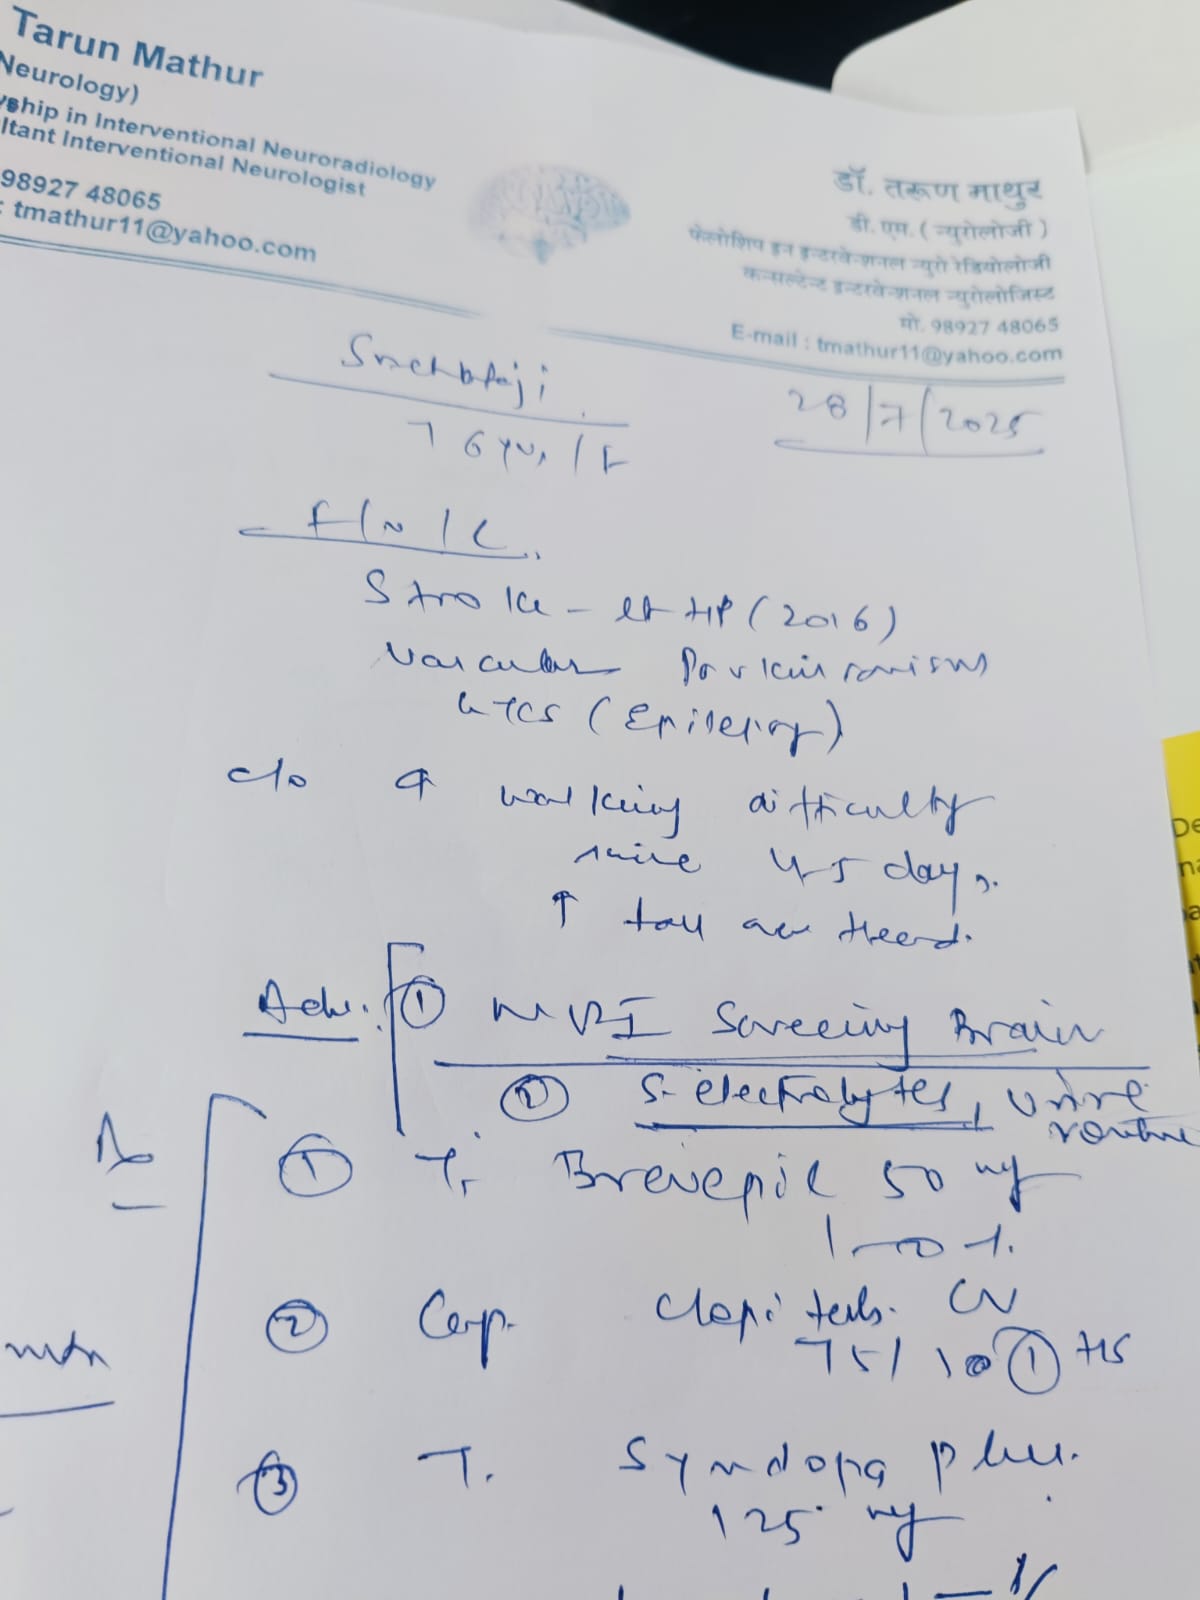 Tarun Mathur
Neurology)
ship in Interventional Neuroradiology
ltant Interventional Neurologist
98927 48065
: tmathur11@yahoo.com
डॉ. तरूण माथुर
डी. एम. ( न्युरोलोजी )
फेलोशिप इन इन्टरवेन्शनल न्युरो रेडियोलोजी
कन्सल्टेन्ट इन्टरवेन्शनल न्युरोलोजिस्ट
मो. 98927 48065
E-mail : tmathur11@yahoo.com
28/7/2025
76 yrs / F
Stroke - Lt HP (2016)
Vascular Parkinsonism
GTCS (Epilepsy)
c/o ↑ walking difficulty
since 4-5 days.
↑
Adv. ① MRI Screening Brain
② S. electrolytes, Urine
routine
Rx
① T. Brevepil 50 mg
1-0-1.
② Cap. Clopitab. CV
75/10 ① HS
③ T. Syndopa plus.
125 mg
De
na